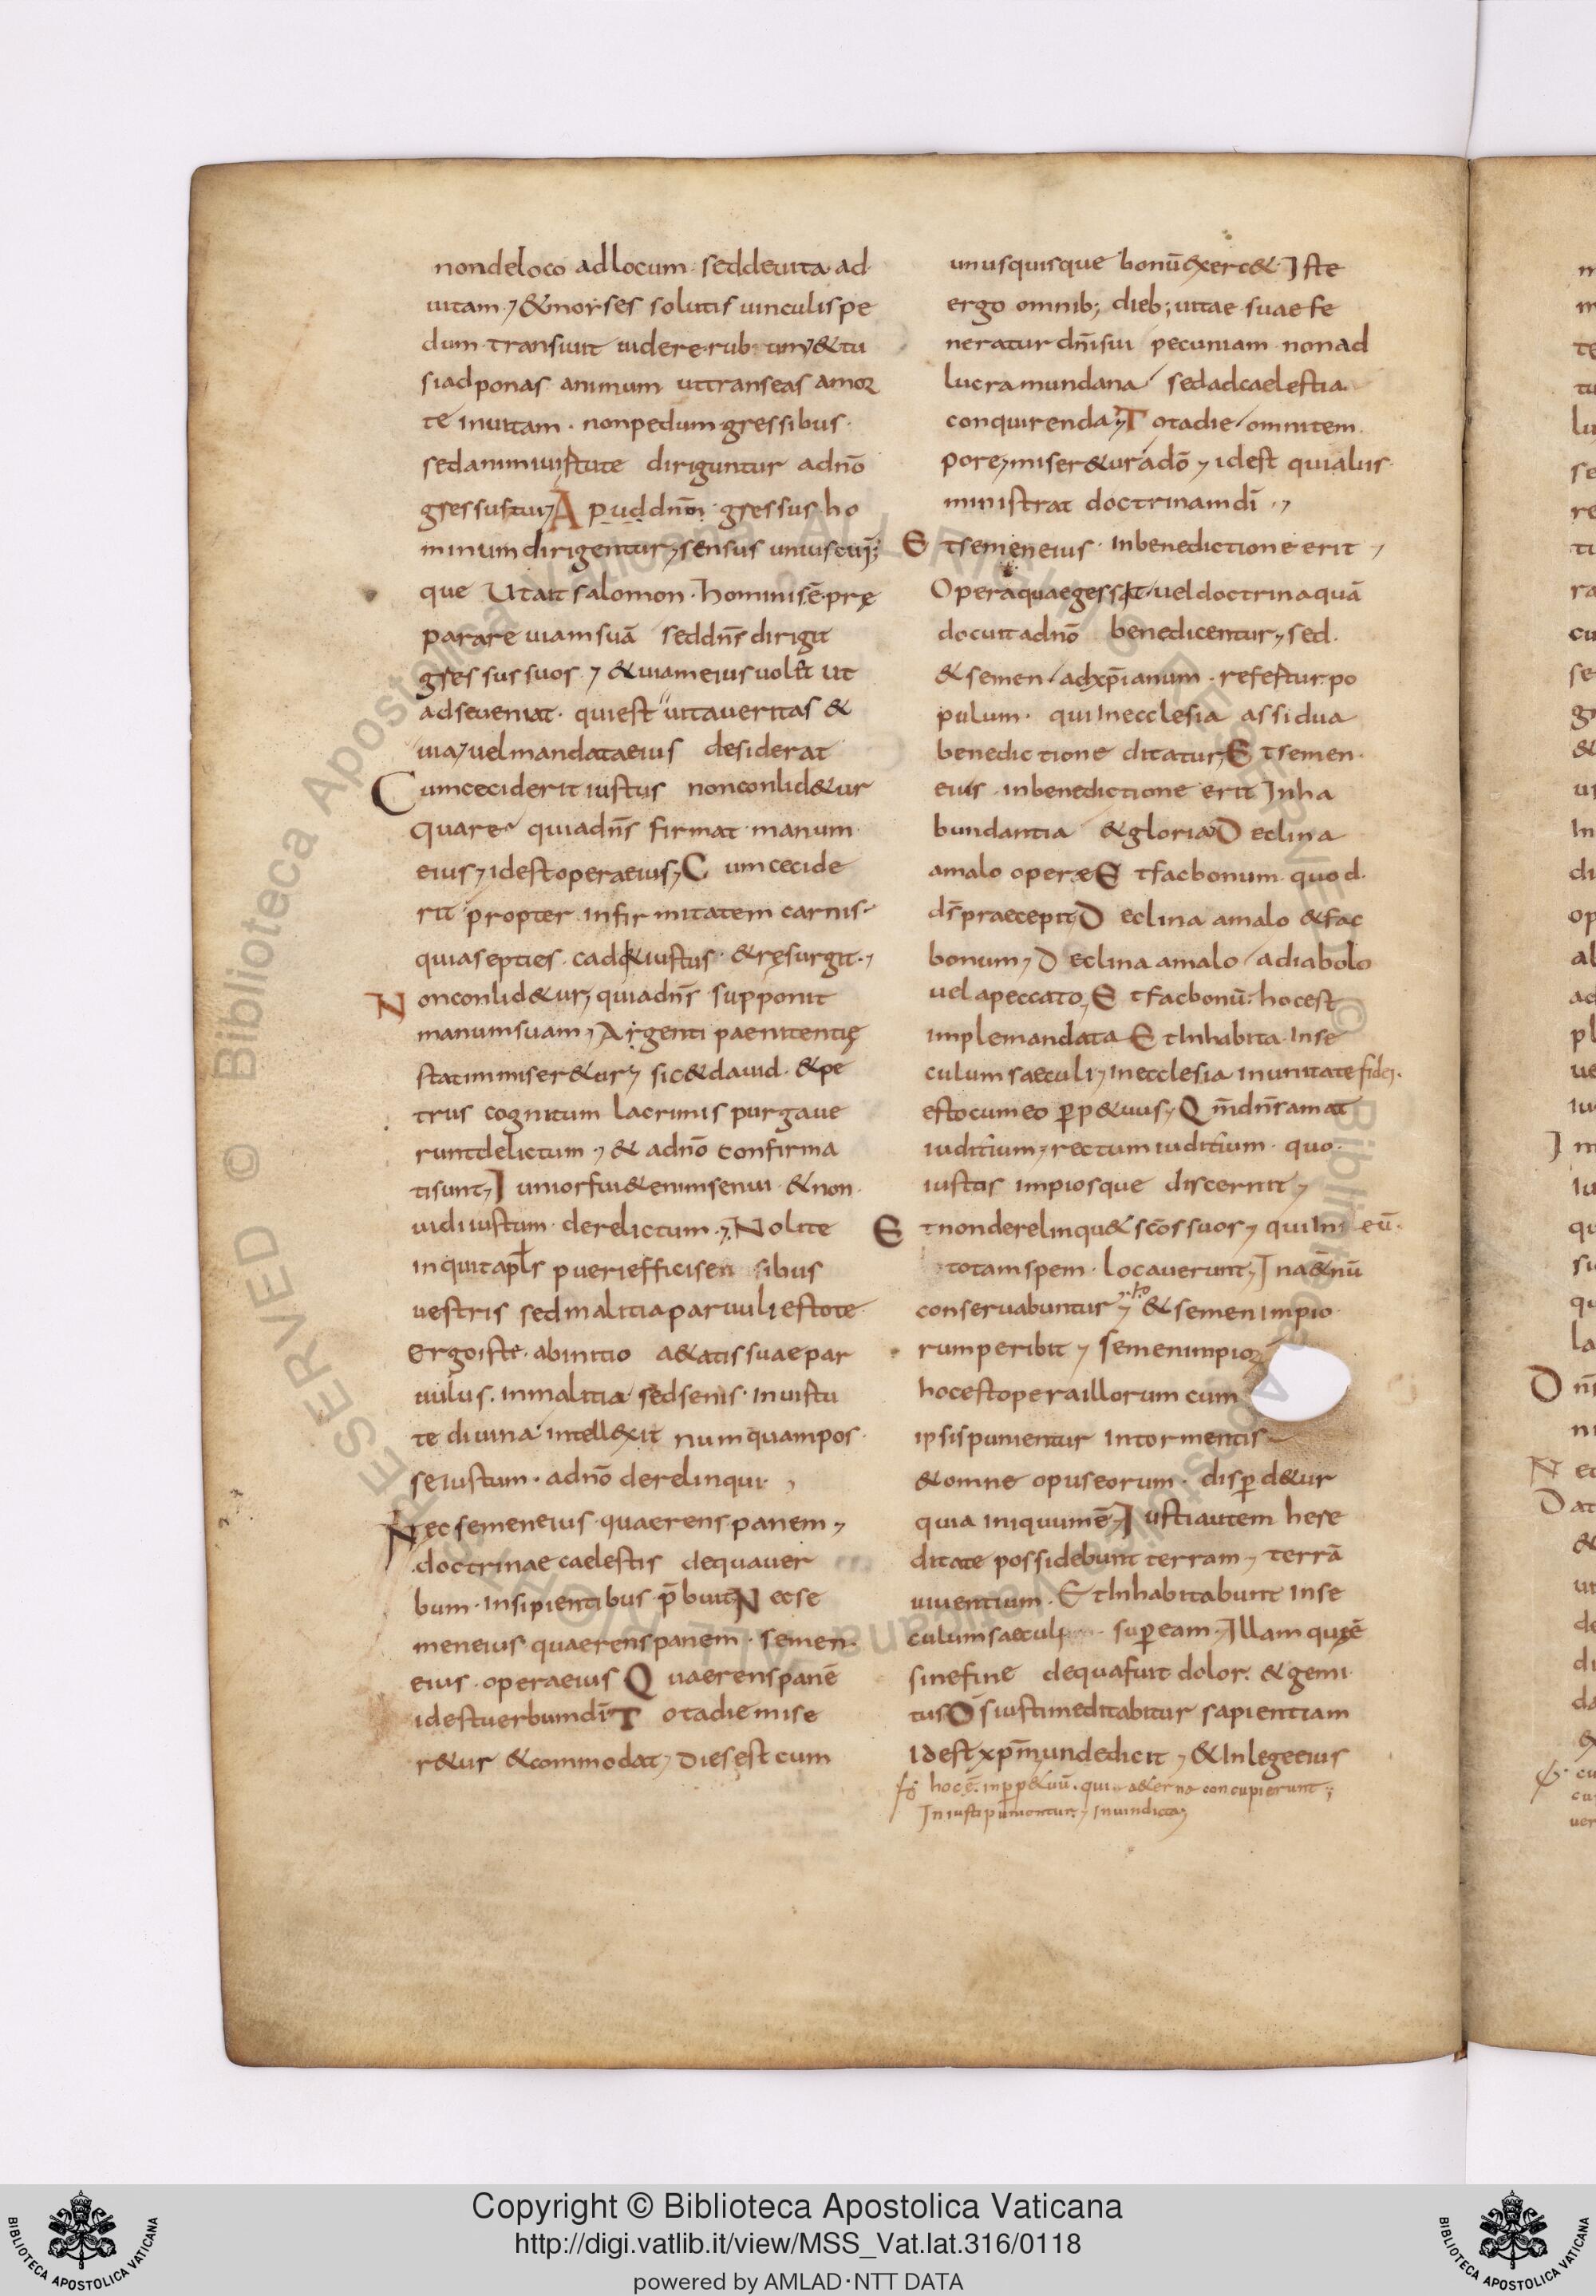 non de loco ad locum · sed de uita ad
uitam, & morses solutis uinculis pe
dum transiuit uidere rubum, & tu
si ad ponas animum ut transeas a mor
te in uitam · non pedum gressibus
sed animi uirtute diriguntur ad dnō
gressus tui, Apud dnm̄ gressus ho
minum dirigentur, sensus uniuscui;
que Ut ait salomon · hominis ē · prę
parare uiam suā sed dns̄ dirigit
gressus suos, & uiam eius uolet ut
ad se ueniat · qui est uita ueritas &
uia, uel mandata eius desiderat
Cum ceciderit iustus non conlid&ur
quare quia dns̄ firmat manum
eius, id est opera eius, Cum cecide
rit propter infirmitatem carnis
quia septies cad& iustus · & resurgit
Non conlid&ur, quia dns̄ supponit
manum suam, Argenti paenitentię
statim miser&ur, sic & dauid · & pe
trus cognitum lacrimis purgaue
runt delictum, & a dnō confirma
ti sunt, Iunior fui & enim senui & non
uidi iustum derelictum, Nolite
inquit apls pueri effici sensibus
uestris sed malitia paruuli estote
Ergo iste ab initio a&atis suae par
uulus in malitia sed senis in uirtu
te diuina intellexit numquam pos
se iustum · a dnō derelinqui
Nec semen eius quaerens panem,
doctrinae caelestis de qua uer
bum · insipientibus p̄buit Nec se
men eius quaerens panem · semen
eius · opera eius Quaerens panē
id est uerbum dī Tota die mise
r&ur & commodat, dies est cum
unusquisque bonū exerc& · Iste
ergo omnib; dieb; uitae suae fe
neratur dn̄i sui pecuniam non ad
lucra mundana sed ad caelestia
conquirenda, Tota die omni tem
pore, miser&ur a dō, id est qui aliis
ministrat doctrinam dī
Et semen eius · In benedictione erit,
Opera quae gessit uel doctrina quā
docuit a dnō benedicentur, sed
& semen ad xp̄ianum · refertur po
pulum · qui in ecclesia assidua
benedictione ditatur, Et semen
eius · in benedictione erit In ha
bundantia & gloria Declina
a malo opere Et fac bonum quod
ds̄ praecepit Declina a malo & fac
bonum, Declina a malo a diabolo
uel a peccato, Et fac bonū: hoc est
imple mandata Et Inhabita In se
culum saeculi, In ecclesia in unitate fidei
esto cum eo p̄p&uus, Qm̄ dns̄ amat
iuditium, rectum iuditium · quo
iustis impiosque discernit,
Et non derelinqu& scōs suos, qui In eū
totam spem · locauerunt, In a&nū
conseruabuntur · & semen impio
rum peribit, semen impior
hoc est opera illorum cum
ipsis punientur In tormentis
& omne opus eorum · disp̄d&ur
quia iniquum ē, Iusti autem here
ditate possidebunt terram, terrā
uiuentium · Et Inhabitabunt In se
culum saeculi sup̄ eam, Illam quę ē
sine fine de qua fuit dolor & gemi
tus Os iusti meditabitur sapientiam
Id est xpm̄, unde dicit, & In lege eius
hoc ē · in p̄p&uū · qui a&erna concupierunt;
Iniusti punientur, In uindicta,
Copyright © Biblioteca Apostolica Vaticana
http://digi.vatlib.it/view/MSS_Vat.lat.316/0118
powered by AMLAD·NTT DATA